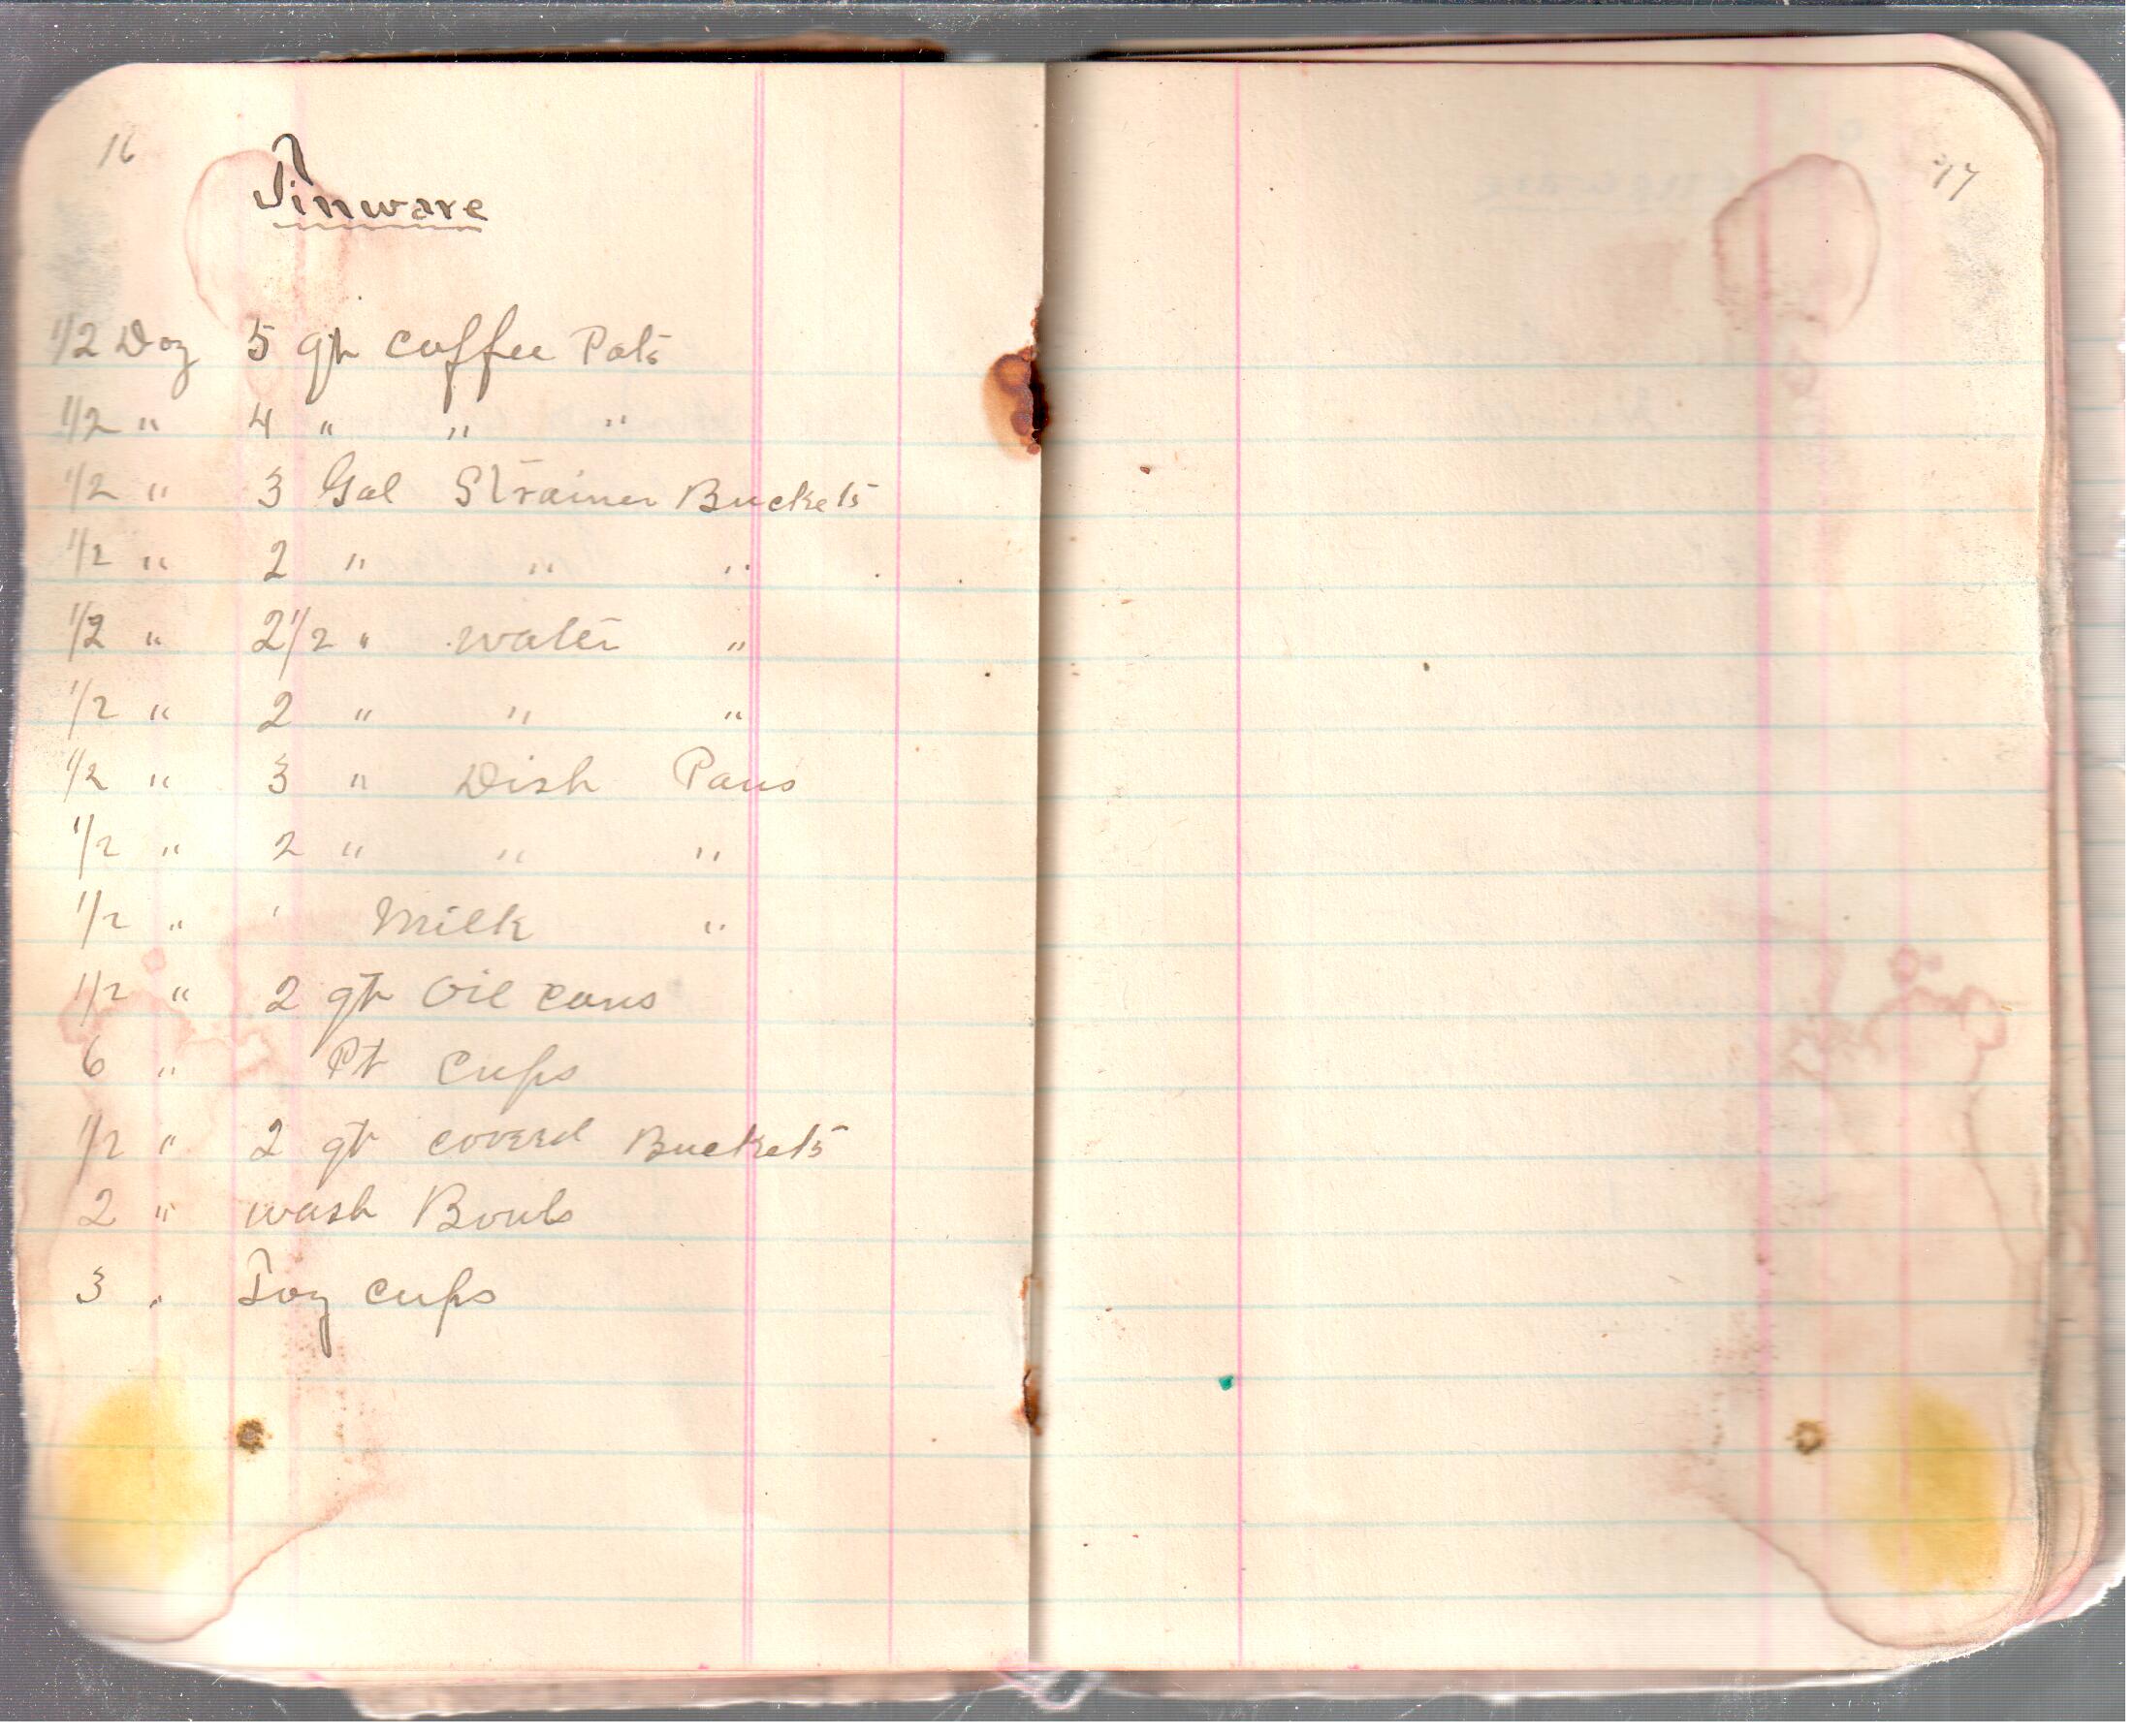 16
Tinware
1/2 Doz 5 qt coffee Pots
1/2 " 4 " " "
1/2 " 3 Gal Strainer Buckets
1/2 " 2 " " "
1/2 " 2 1/2 " water "
1/2 " 2 " " "
1/2 " 3 " Dish Pans
1/2 " 2 " " "
1/2 " Milk "
1/2 " 2 qt Oil cans
6 " Pt Cups
1/2 " 2 qt coverd Buckets
2 " wash Bowls
3 " Toy cups
17